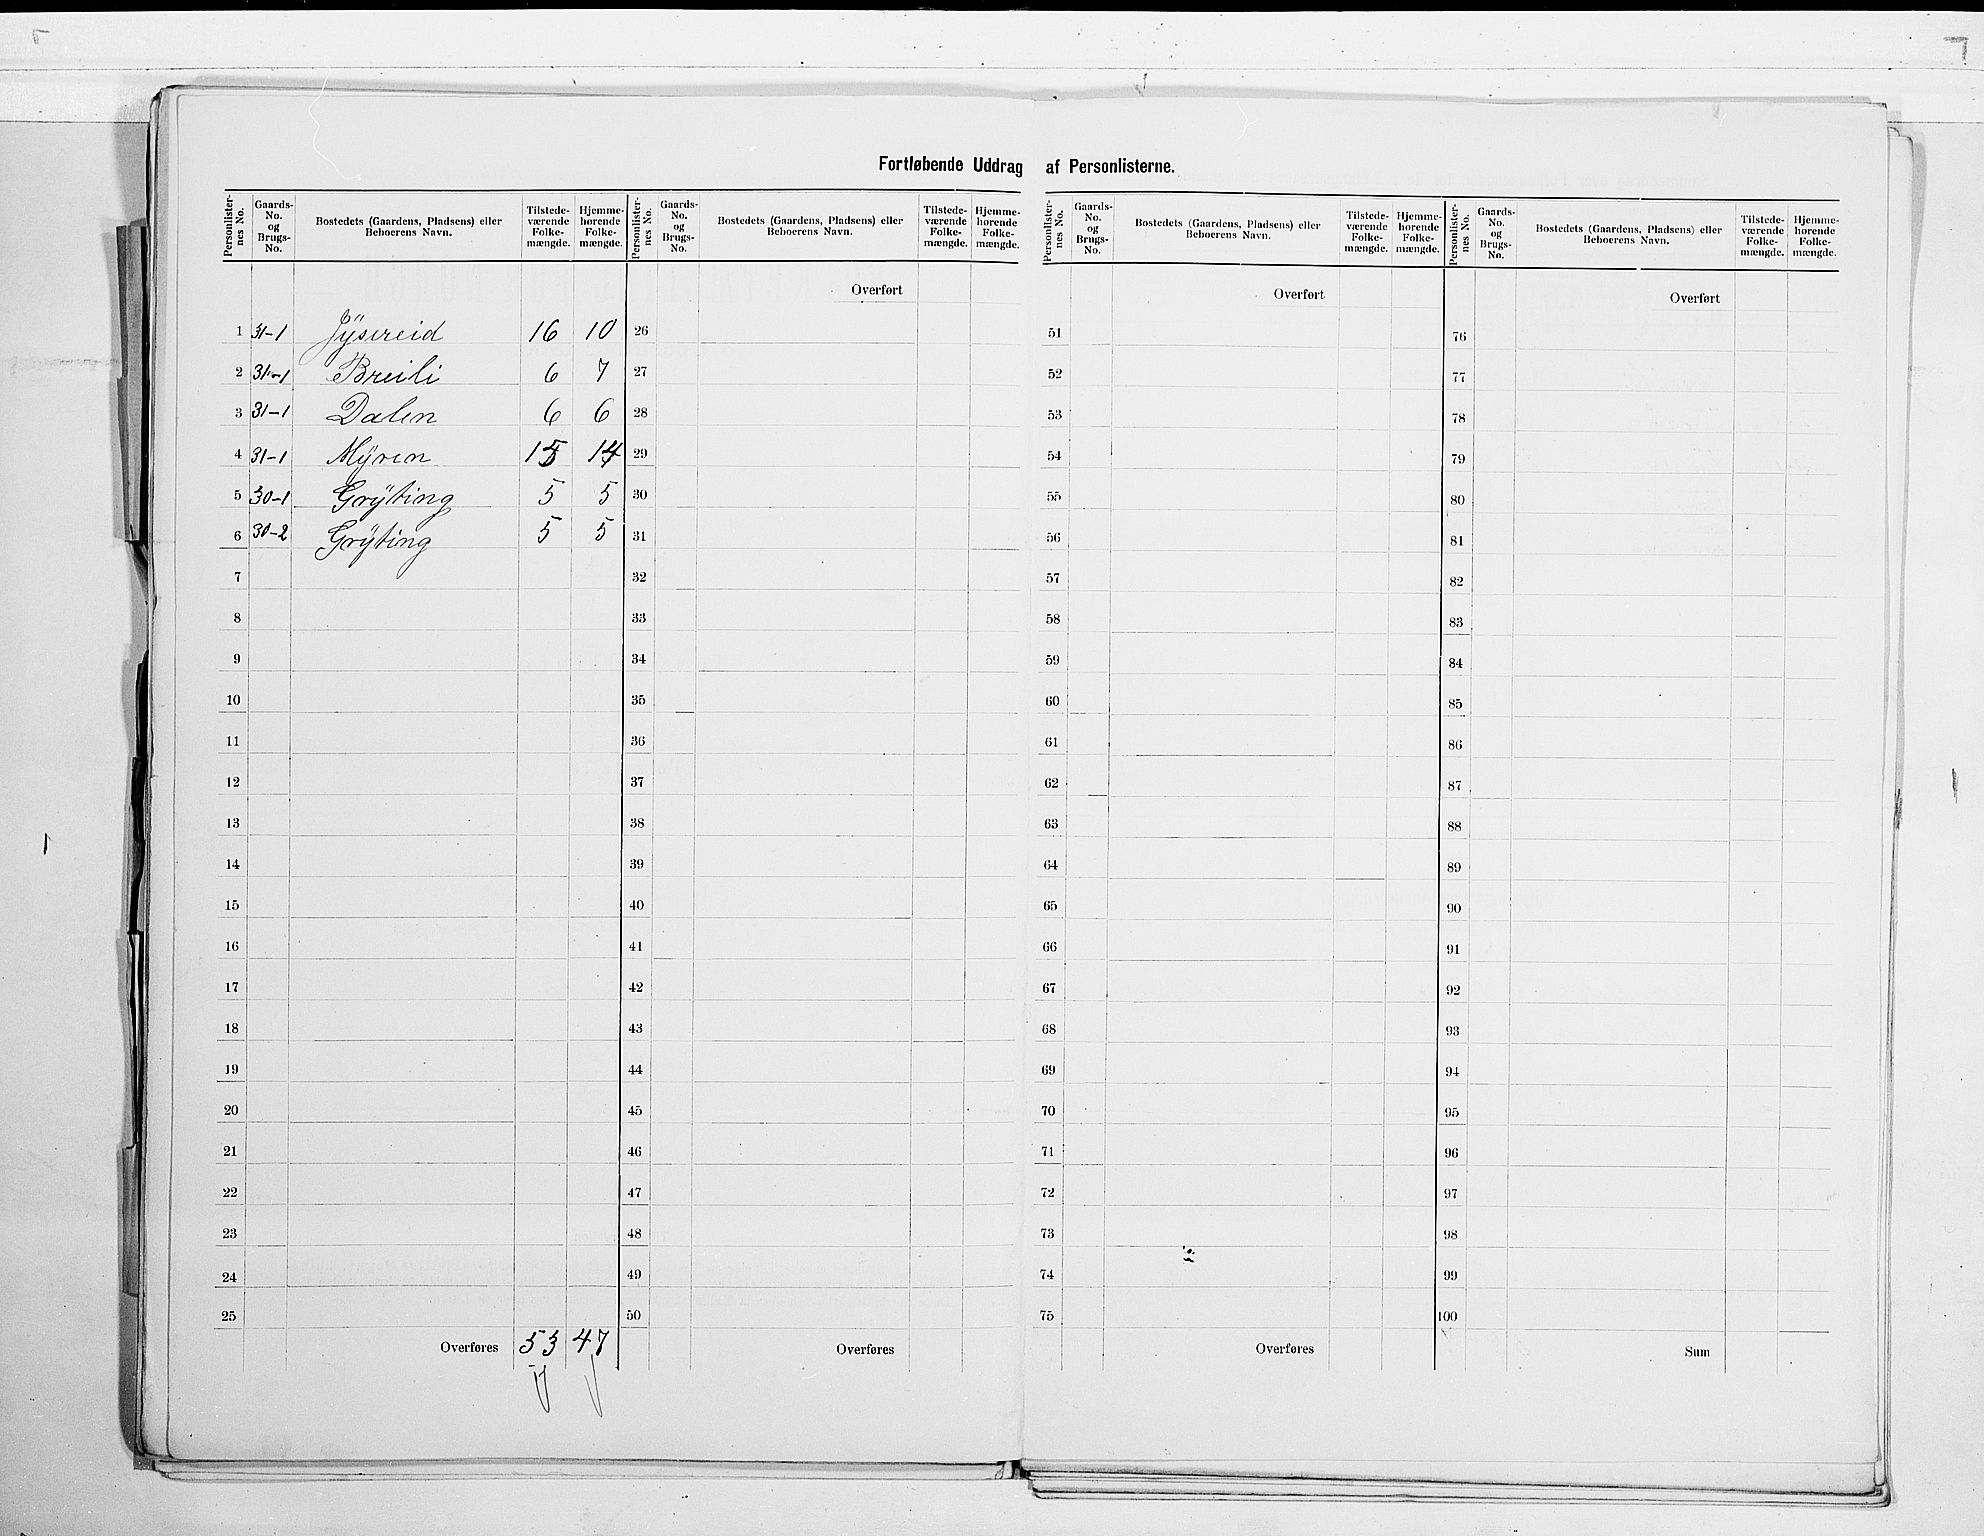 Fortløbende Uddrag af Personlisterne.
Personlister-nes No. Gaards-No. og Brugs-No. Bostedets (Gaardens, Pladsens) eller Beboerens Navn. Tilstede-værende Folke-mængde. Hjemme-hørende Folke-mængde.
Personlister-nes No. Gaards-No. og Brugs-No. Bostedets (Gaardens, Pladsens) eller Beboerens Navn. Tilstede-værende Folke-mængde. Hjemme-hørende Folke-mængde.
Personlister-nes No. Gaards-No. og Brugs-No. Bostedets (Gaardens, Pladsens) eller Beboerens Navn. Tilstede-værende Folke-mængde. Hjemme-hørende Folke-mængde.
Personlister-nes No. Gaards-No. og Brugs-No. Bostedets (Gaardens, Pladsens) eller Beboerens Navn. Tilstede-værende Folke-mængde. Hjemme-hørende Folke-mængde.
Overført Overført Overført
1 31-1 16 10 26 51 76
2 31-1 Breili 6 7 27 52 77
3 31-1 Dalen 6 6 28 53 78
4 31-1 Myren 15 14 29 54 79
5 30-1 Grÿting 5 5 30 55 80
6 30-2 Grÿting 5 5 31 56 81
7 32 57 82
8 33 58 83
9 34 59 84
10 35 60 85
11 36 61 86
12 37 62 87
13 38 63 88
14 39 64 89
15 40 65 90
16 41 66 91
17 42 67 92
18 43 68 93
19 44 69 94
20 45 70 95
21 46 71 96
22 47 72 97
23 48 73 98
24 49 74 99
25 50 75 100
Overføres 53 47 Overføres Overføres Sum